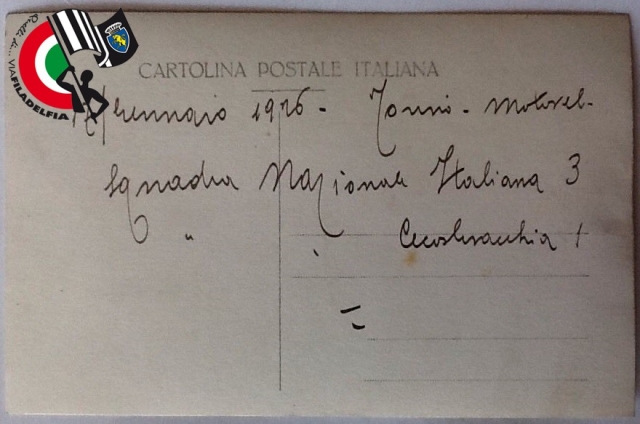 Quelli di... VIA FILADELFIA
CARTOLINA POSTALE ITALIANA
Gennaio 1926 - Torino - Motovel-
Squadra Nazionale Italiana 3
" Cecoslovacchia 1